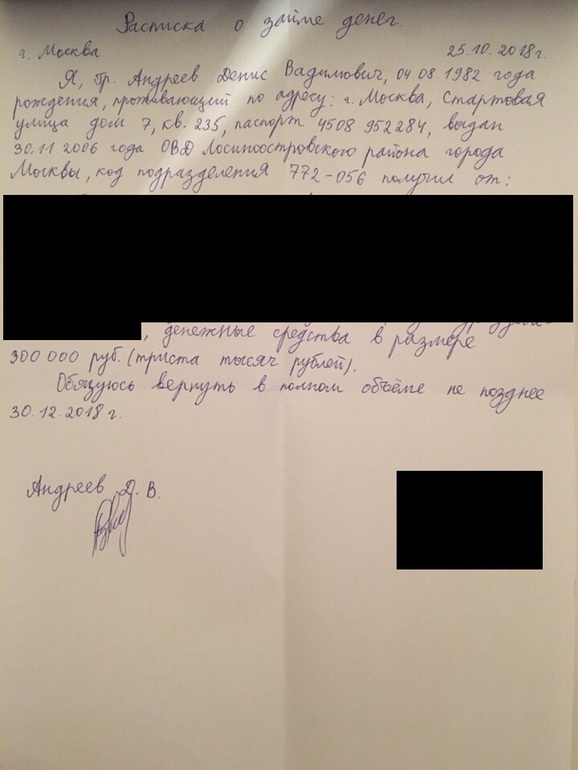 Расписка о займе денег.
г. Москва 25.10.2018г.
Я, гр. Андреев Денис Вадимович, 04 08 1982 года
рождения, проживающий по адресу: г. Москва, Стартовая
улица дом 7, кв. 235, паспорт 4508 952284, выдан
30.11.2006 года ОВД Лосиноостровского района города
Москвы, код подразделения 772-056 получил от:
, денежные средства в размере
300 000 руб. (триста тысяч рублей).
Обязуюсь вернуть в полном объёме не позднее
30.12.2018 г.
Андреев Д. В.